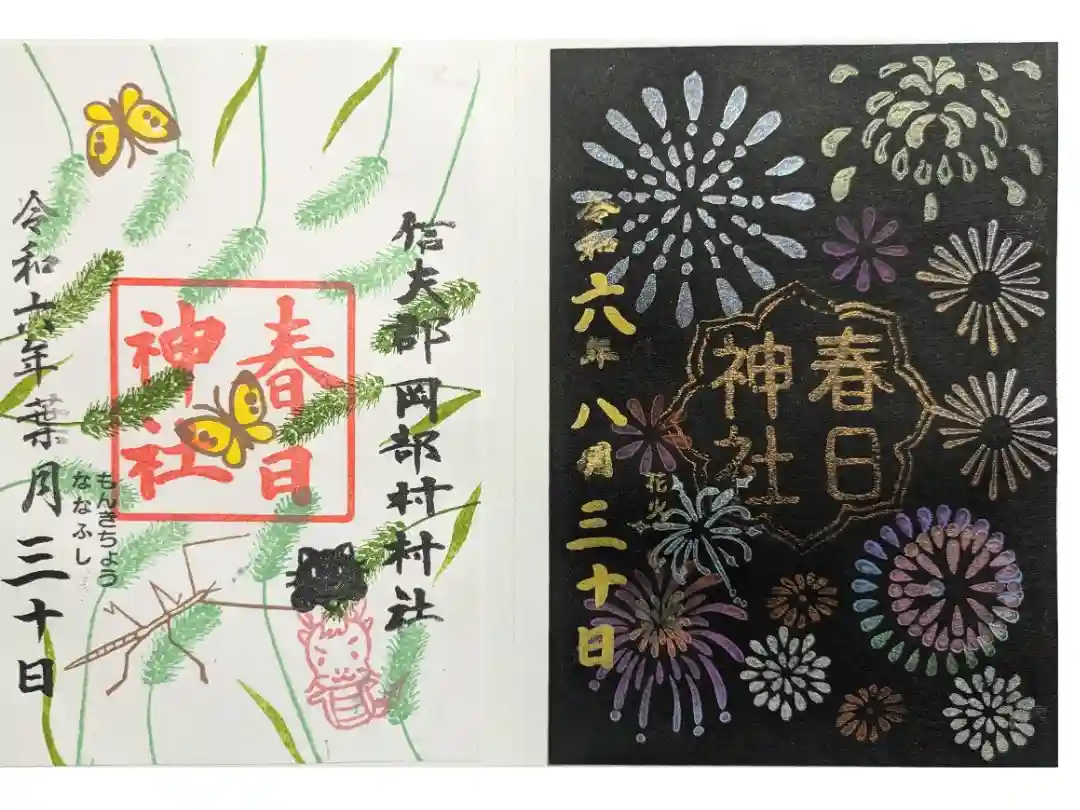 信夫郡岡部村村社
春日
神社
もんきちょう
ななふし
令和六年葉月三十日
春日
神社
花火
令和六年八月三十日